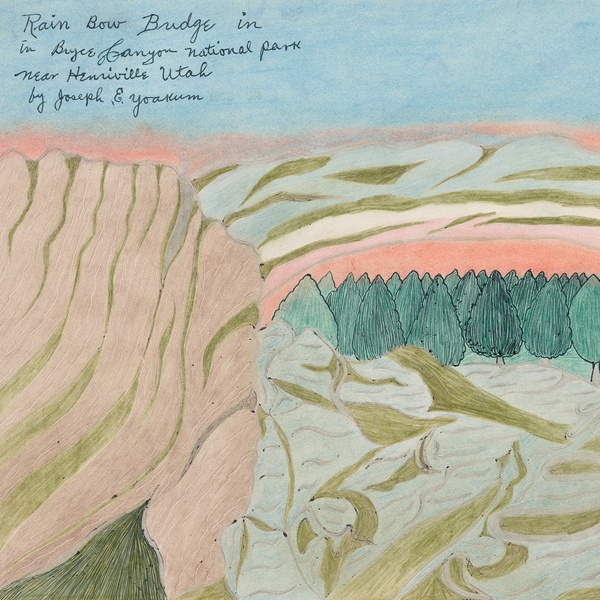 Rain Bow Bridge in
in Bryce Canyon National Park
near Henriville Utah
by Joseph E. Yoakum